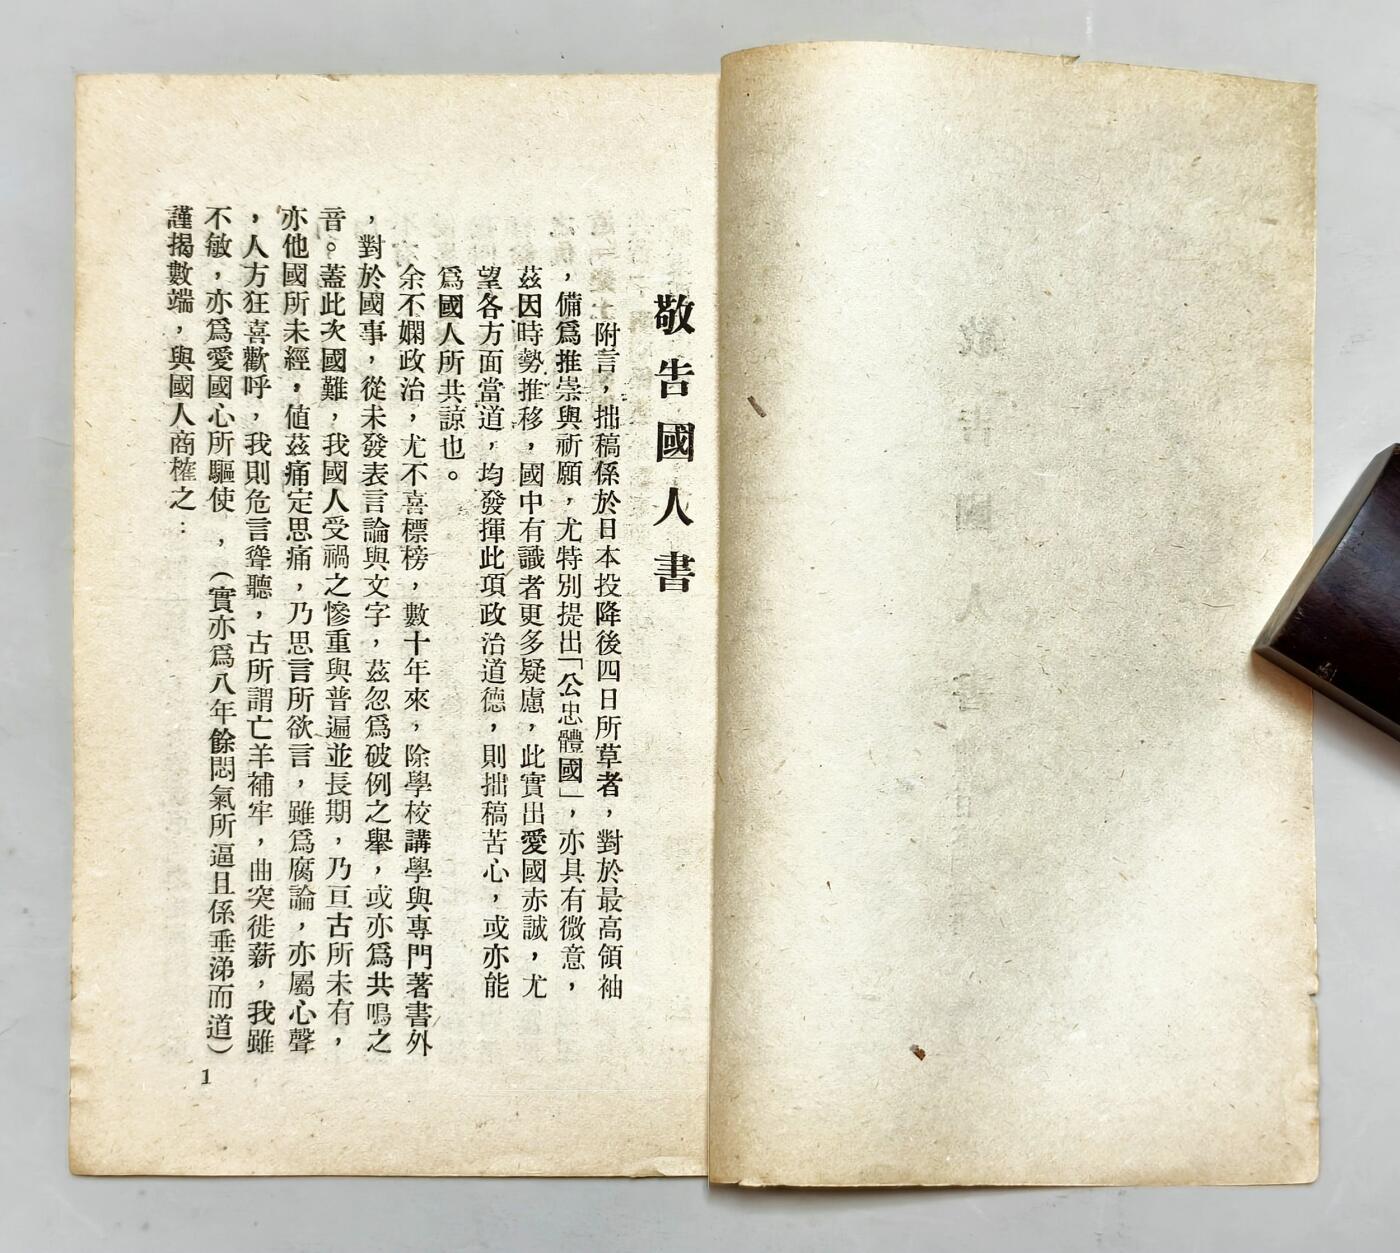 敬告國人書
附言，拙稿係於日本投降後四日所草者，對於最高領袖
，備爲推崇與祈願，尤特別提出「公忠體國」，亦具有微意，
茲因時勢推移，國中有識者更多疑慮，此實出愛國赤誠，尤
望各方面當道，均發揮此項政治道德，則拙稿苦心，或亦能
爲國人所共諒也。
余不嫻政治，尤不喜標榜，數十年來，除學校講學與專門著書外
，對於國事，從未發表言論與文字，茲忽爲破例之舉，或亦爲共鳴之
音。蓋此次國難，我國人受禍之慘重與普遍並長期，乃亘古所未有，
亦他國所未經，值茲痛定思痛，乃思言所欲言，雖爲腐論，亦屬心聲
，人方狂喜歡呼，我則危言聳聽，古所謂亡羊補牢，曲突徙薪，我雖
不敏，亦爲愛國心所驅使，（實亦爲八年餘悶氣所逼且係垂涕而道）
謹揭數端，與國人商榷之：
1